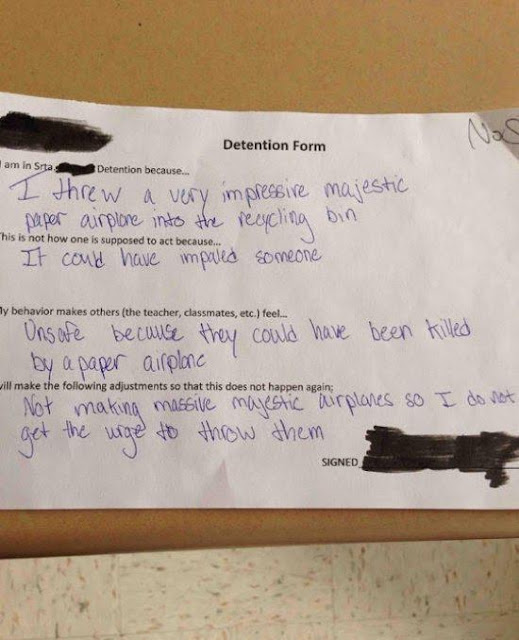 Detention Form
NoS
I am in Srta. Detention because...
I threw a very impressive majestic
paper airplane into the recycling bin
This is not how one is supposed to act because...
It could have impaled someone
My behavior makes others (the teacher, classmates, etc.) feel...
Unsafe because they could have been killed
by a paper airplane
will make the following adjustments so that this does not happen again;
Not making massive majestic airplanes so I do not
get the urge to throw them
SIGNED